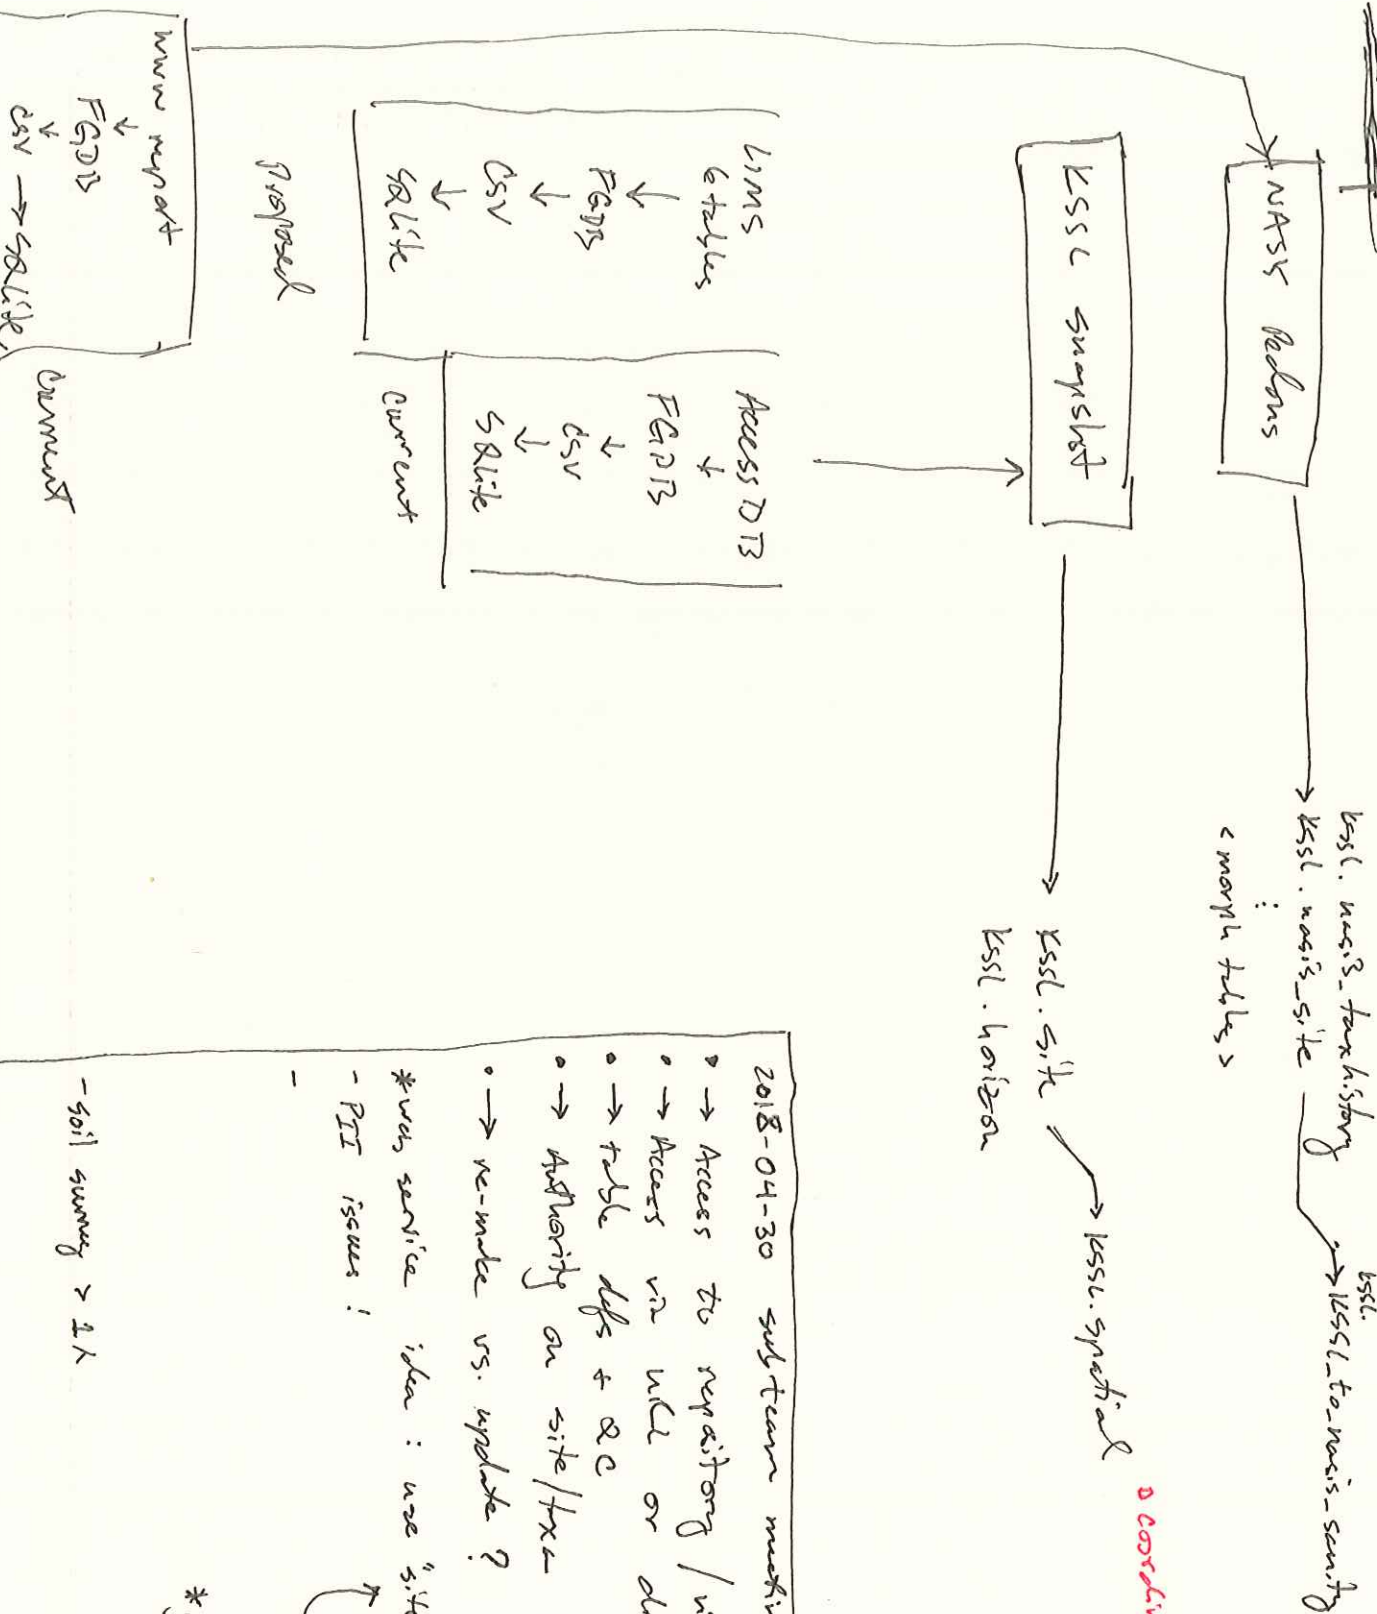 NASIS Pedons
kssl.nasis_taxhistory
kssl.nasis_site
⋮
< morph tables >
kssl.
kssl_to_nasis_sanity
KSSL snapshot
kssl.site
kssl.horizon
kssl.spatial
LIMS
6 tables
↓
FGDB
↓
CSV
↓
SQLite
Proposed
Access DB
↓
FGDB
↓
CSV
↓
SQLite
Current
www report
↓
FGDB
↓
CSV → SQLite
Current
2018-04-30 subteam
• → Access to repository /
• → Access via url or
• → table defs + QC
• → Authority on site/taxa
• → re-make vs. update ?
* web service idea : use "site
- PII issues !
-
- soil survey >
*